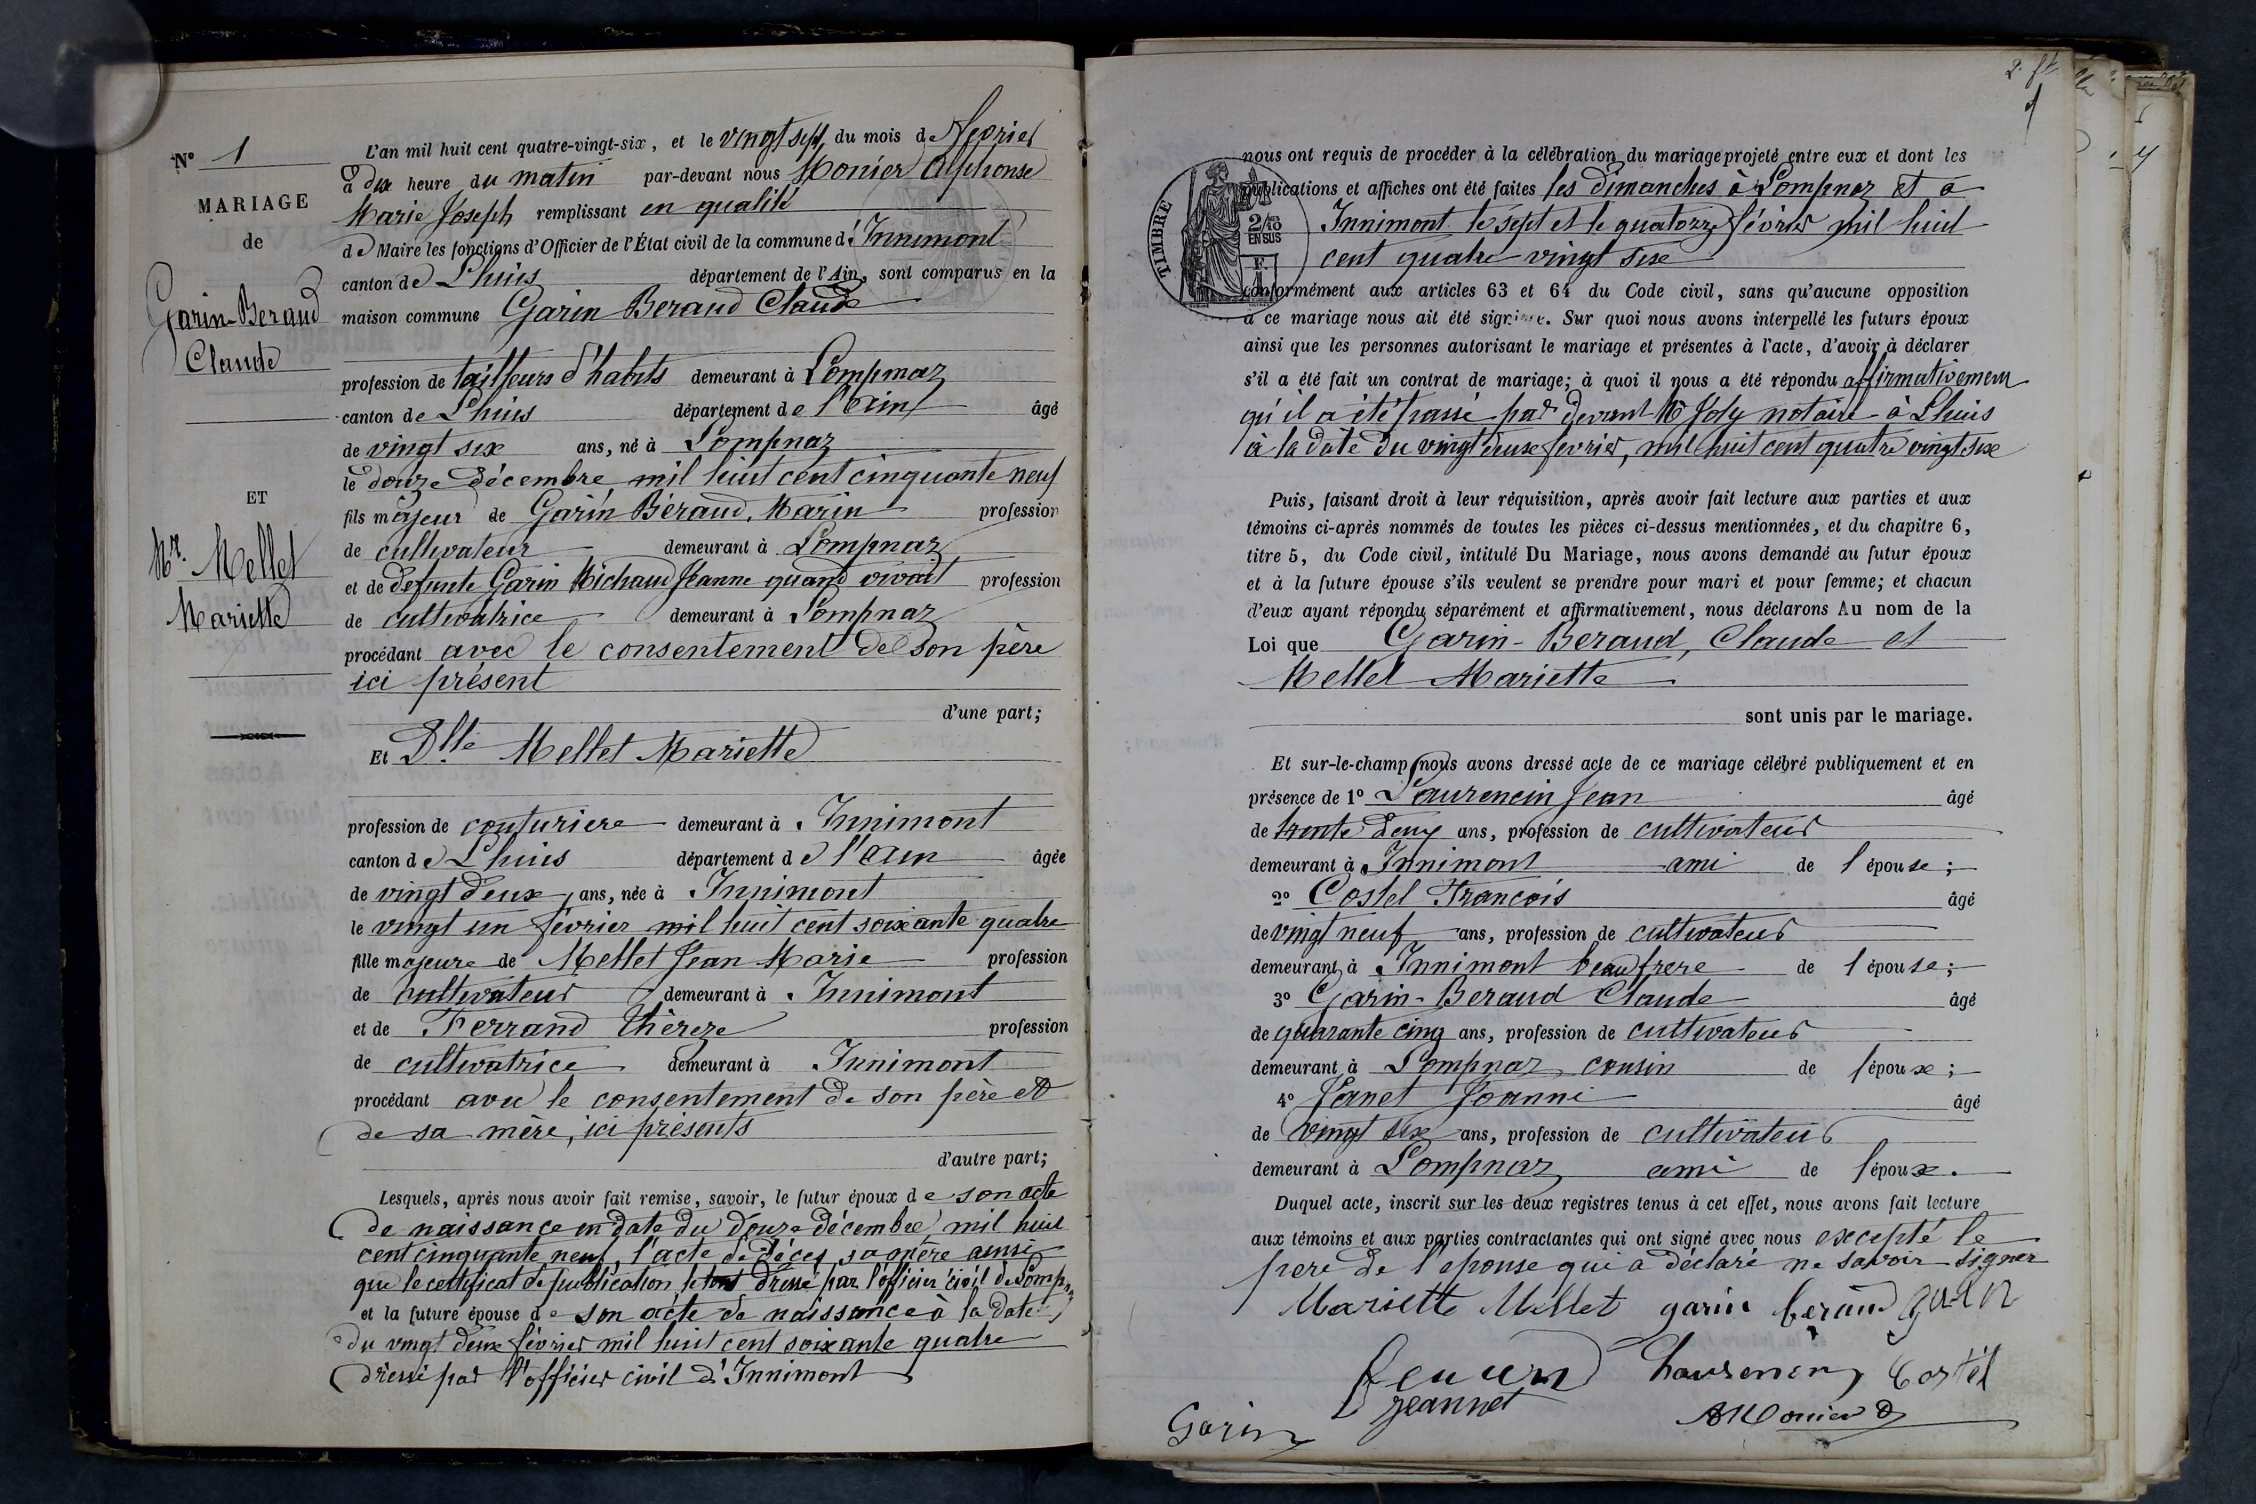 N° 1
MARIAGE
de
Garin-Beraud
Claude
ET
Mr. Mellet
Mariette
L'an mil huit cent quatre-vingt-six, et le vingt sept du mois de Fevrier
à dix heure du matin par-devant nous Monier Alphonse
Marie Joseph remplissant en qualité
de Maire les fonctions d'Officier de l'État civil de la commune d'Innimont
canton de Lhuis département de l'Ain, sont comparus en la
maison commune Garin Beraud Claude
profession de tailleurs d'habits demeurant à Lompnaz
canton de Lhuis département de l'Ain âgé
de vingt six ans, né à Lompnaz
le douze décembre mil huit cent cinquante neuf
fils majeur de Garin Béraud, Marin profession
de cultivateur demeurant à Lompnaz
et de défunte Garin Michaud Jeanne quand vivait profession
de cultivatrice demeurant à Lompnaz
procédant avec le consentement de son père
ici présent
d'une part;
Et Dlle Mellet Mariette
profession de couturiere demeurant à Innimont
canton de Lhuis département de l'Ain âgée
de vingt deux ans, née à Innimont
le vingt un février mil huit cent soixante quatre
fille majeure de Mellet Jean Marie profession
de cultivateur demeurant à Innimont
et de Ferrand Thèreze profession
de cultivatrice demeurant à Innimont
procédant avec le consentement de son père et
de sa mère, ici présents
d'autre part;
Lesquels, après nous avoir fait remise, savoir, le futur époux de son acte
de naissance en date du douze décembre mil huit
cent cinquante neuf, l'acte de décès sa mère ainsi
que le certificat de publication, le tout dressé par l'officier civil de Lompnaz
et la future épouse de son acte de naissance à la date
du vingt deux février mil huit cent soixante quatre
dressé par l'officier civil d'Innimont
2. ft
nous ont requis de procéder à la célébration du mariage projeté entre eux et dont les
publications et affiches ont été faites les dimanches à Lompnaz et à
Innimont le sept et le quatorze février mil huit
cent quatre vingt six
TIMBRE
2/10
EN SUS
conformément aux articles 63 et 64 du Code civil, sans qu'aucune opposition
à ce mariage nous ait été signifiée. Sur quoi nous avons interpellé les futurs époux
ainsi que les personnes autorisant le mariage et présentes à l'acte, d'avoir à déclarer
s'il a été fait un contrat de mariage; à quoi il nous a été répondu affirmativement
qu'il a été passé par devant Me Joly notaire à Lhuis
à la date du vingt deux fevrier, mil huit cent quatre vingt six
Puis, faisant droit à leur réquisition, après avoir fait lecture aux parties et aux
témoins ci-après nommés de toutes les pièces ci-dessus mentionnées, et du chapitre 6,
titre 5, du Code civil, intitulé Du Mariage, nous avons demandé au futur époux
et à la future épouse s'ils veulent se prendre pour mari et pour femme; et chacun
d'eux ayant répondu séparément et affirmativement, nous déclarons Au nom de la
Loi que Garin-Beraud, Claude et
Mellet Mariette
sont unis par le mariage.
Et sur-le-champ nous avons dressé acte de ce mariage célébré publiquement et en
présence de 1° Laurencin Jean âgé
de trente deux ans, profession de cultivateur
demeurant à Innimont ami de l'épouse;
2° Costel François âgé
de vingt neuf ans, profession de cultivateur
demeurant à Innimont beau frere de l'épouse;
3° Garin-Beraud Claude âgé
de quarante cinq ans, profession de cultivateur
demeurant à Lompnaz cousin de l'époux;
4° Janet Joanni âgé
de vingt six ans, profession de cultivateur
demeurant à Lompnaz ami de l'époux.
Duquel acte, inscrit sur les deux registres tenus à cet effet, nous avons fait lecture
aux témoins et aux parties contractantes qui ont signé avec nous excepté le
pere de l'epouse qui a déclaré ne savoir signer
Mariette Mellet garin beraud garin
Laurencin Costel
Jeannet
Garin AMonier